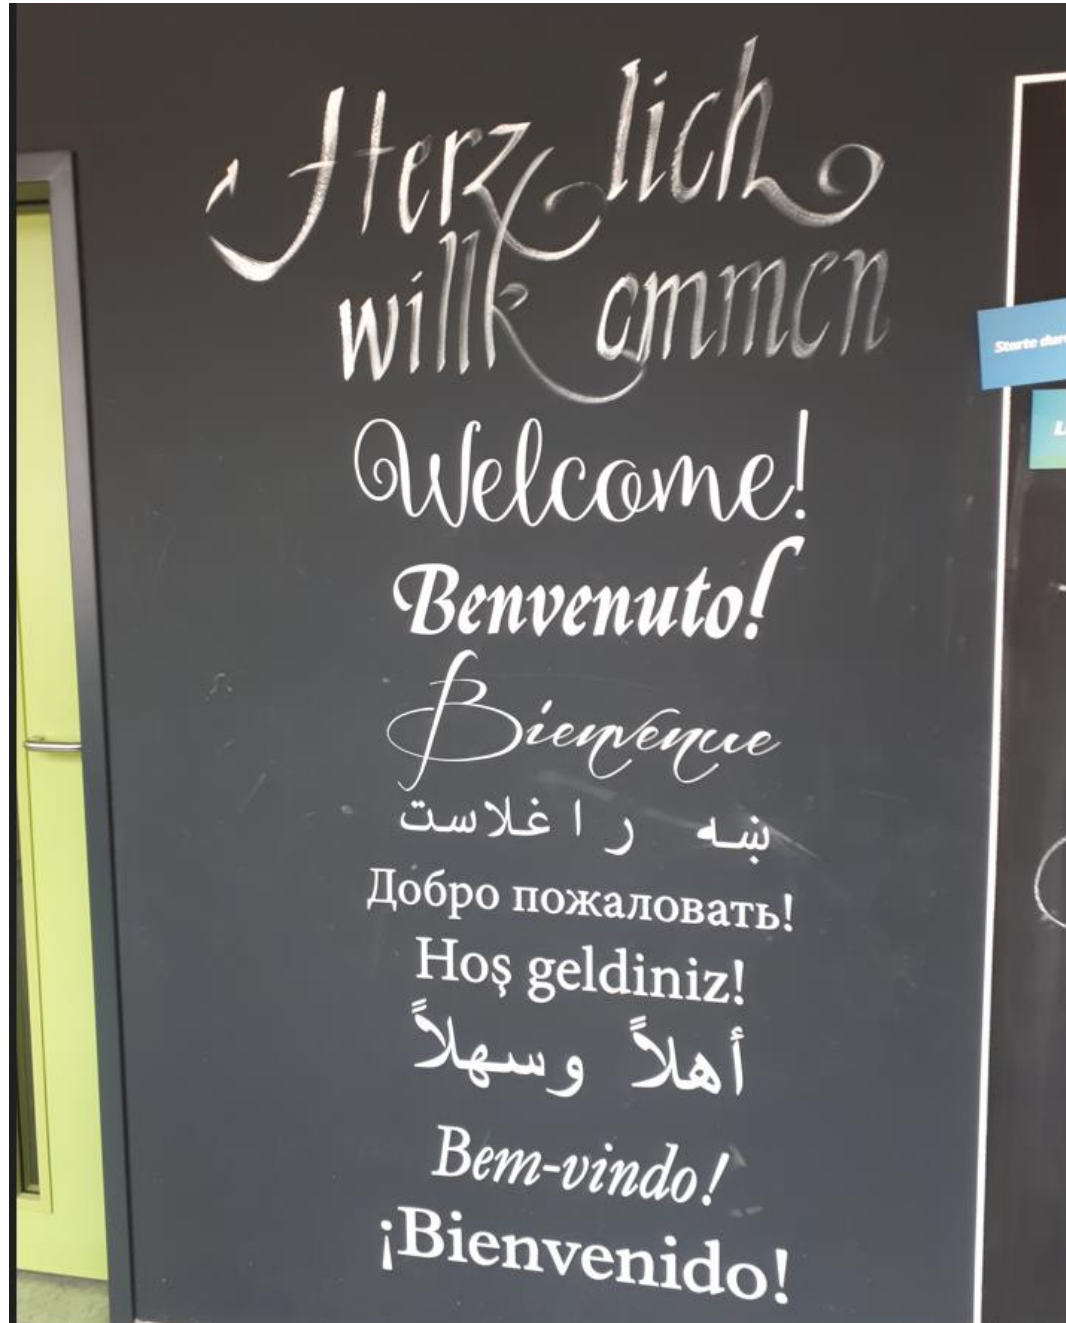 Herzlich
willkommen
Welcome!
Benvenuto!
Bienvenue
ښه راغلاست
Добро пожаловать!
Hoş geldiniz!
أهلاً وسهلاً
Bem-vindo!
¡Bienvenido!
Starte